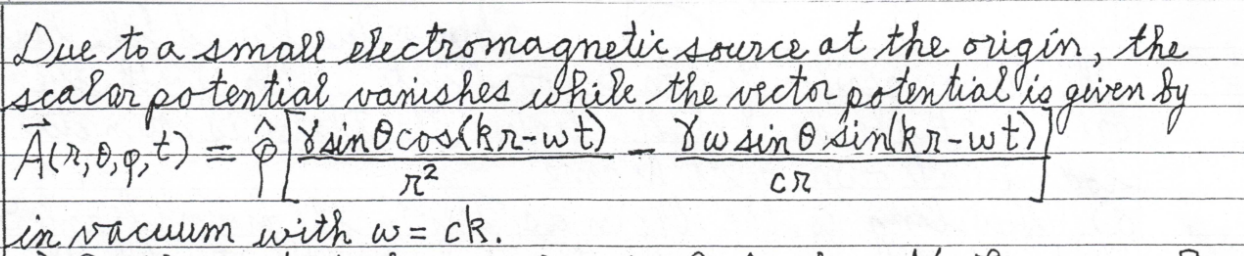 Due to a small electromagnetic source at the origin, the
scalar potential vanishes while the vector potential is given by
$\vec{A}(r,\theta,\varphi,t) = \hat{\varphi}\left[\frac{\gamma \sin\theta \cos(kr-\omega t)}{r^2} - \frac{\gamma \omega \sin\theta \sin(kr-\omega t)}{cr}\right]$
in vacuum with ω = ck.